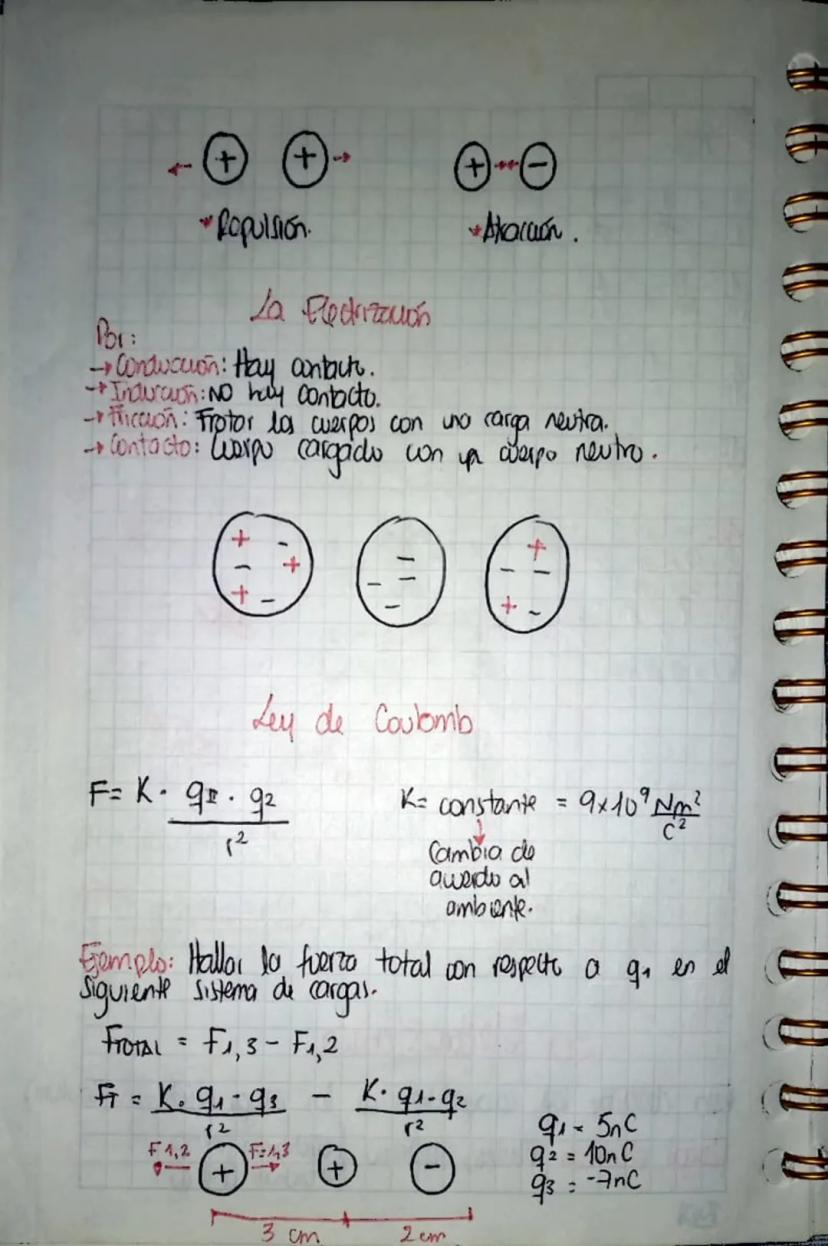 + + + -
*Repulsión. *Atracción.
La Electrización
Por:
→ Conducción: Hay contacto.
→ Inducción: NO hay contacto.
→ Fricción: Frotar los cuerpos con una carga neutra.
→ Contacto: Cuerpo cargado con un cuerpo neutro.
+ - - + + -
- + - - - -
+ - - + -
Ley de Coulomb
F = K · q1 · q2 / r² K = constante = 9x10⁹ Nm²/C²
Cambia de
acuerdo al
ambiente.
Ejemplo: Hallar la fuerza total con respecto a q1 en el
siguiente sistema de cargas.
FTOTAL = F1,3 - F1,2
FT = K. q1 · q3 / r² - K · q1 - q2 / r²
q1 = 5nC
F1,2 + F=1,3 + - q2 = 10nC
q3 = -7nC
3 cm 2 cm